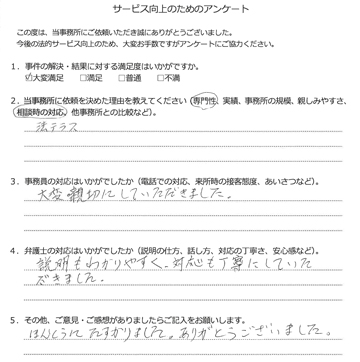 サービス向上のためのアンケート
この度は、当事務所にご依頼いただき誠にありがとうございました。
今後の法的サービス向上のため、大変お手数ですがアンケートにご協力ください。
1．事件の解決・結果に対する満足度はいかがですか。
☑大変満足 □満足 □普通 □不満
2．当事務所に依頼を決めた理由を教えてください（専門性、実績、事務所の規模、親しみやすさ、
相談時の対応、他事務所との比較など）。
法テラス
3．事務員の対応はいかがでしたか（電話での対応、来所時の接客態度、あいさつなど）。
大変親切にしていただきました。
4．弁護士の対応はいかがでしたか（説明の仕方、話し方、対応の丁寧さ、安心感など）。
説明もわかりやすく、対応も丁寧にしていた
だきました。
5．その他、ご意見・ご感想がありましたらご記入をお願いします。
ほんとうにたすかりました。ありがとうございました。